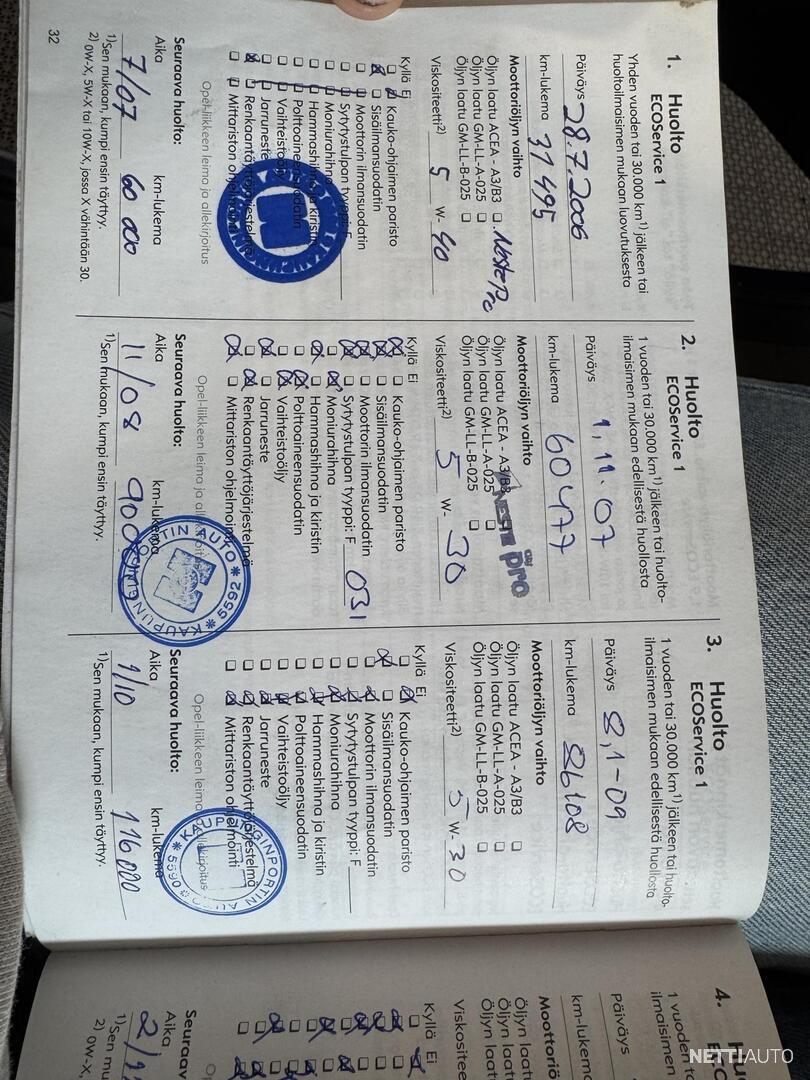 1. Huolto
ECOService 1
Yhden vuoden tai 30.000 km1) jälkeen tai
huoltoilmaisimen mukaan luovutuksesta
Päiväys 28.7.2006
km-lukema 31495
Moottoriöljyn vaihto
Öljyn laatu ACEA - A3/B3 Neste Pro
Öljyn laatu GM-LL-A-025
Öljyn laatu GM-LL-B-025
Viskositeetti2) 5 W- 40
Kyllä Ei
Kauko-ohjaimen paristo
Sisäilmansuodatin
Moottorin ilmansuodatin
Sytytystulpan tyyppi: F
Moniurahihna
Hammashihna ja kiristin
Polttoainesuodatin
Vaihteistoöljy
Jarruneste
Renkaantäyttöjärjestelmä
Mittariston ohjelmointi
Opel-liikkeen leima ja allekirjoitus
Seuraava huolto:
Aika km-lukema
7/07 60 000
1)Sen mukaan, kumpi ensin täyttyy.
2) 0W-X, 5W-X tai 10W-X, jossa X vähintään 30.
32
2. Huolto
ECOService 1
1 vuoden tai 30.000 km1) jälkeen tai huolto-
ilmaisimen mukaan edellisestä huollosta
Päiväys 1.11.07
km-lukema 60477
Moottoriöljyn vaihto
Öljyn laatu ACEA - A3/B3
Öljyn laatu GM-LL-A-025
Öljyn laatu GM-LL-B-025
NESTE pro
Viskositeetti2) 5 W- 30
Kyllä Ei
Kauko-ohjaimen paristo
Sisäilmansuodatin
Moottorin ilmansuodatin
Sytytystulpan tyyppi: F 031
Moniurahihna
Hammashihna ja kiristin
Polttoainesuodatin
Vaihteistoöljy
Jarruneste
Renkaantäyttöjärjestelmä
Mittariston ohjelmointi
Opel-liikkeen leima ja
KAUPUNGINPORTIN AUTO * 5592 *
Seuraava huolto:
Aika km-lukema
11/08
1)Sen mukaan, kumpi ensin täyttyy.
3. Huolto
ECOService 1
1 vuoden tai 30.000 km1) jälkeen tai huolto-
ilmaisimen mukaan edellisestä huollosta
Päiväys 8,1-09
km-lukema 86108
Moottoriöljyn vaihto
Öljyn laatu ACEA - A3/B3
Öljyn laatu GM-LL-A-025
Öljyn laatu GM-LL-B-025
Viskositeetti2) 5 W- 30
Kyllä Ei
Kauko-ohjaimen paristo
Sisäilmansuodatin
Moottorin ilmansuodatin
Sytytystulpan tyyppi: F
Moniurahihna
Hammashihna ja kiristin
Polttoainesuodatin
Vaihteistoöljy
Jarruneste
Renkaantäyttöjärjestelmä
Mittariston ohjelmointi
Opel-liikkeen leima ja allekirjoitus
KAUPUNGINPORTIN AU * 5590 *
Seuraava huolto:
Aika km-lukema
1/10 116000
1)Sen mukaan, kumpi ensin täyttyy.
4. Hu
ECO
1 vuoden ta
ilmaisimen
Päiväys
km-lukema
Moottoriö
Öljyn laat
Öljyn laat
Öljyn laat
Viskositee
Kyllä Ei
Op
Seuraav
Aika
2/1
1)Sen mu
2) 0W-X,
NETTIAUTO